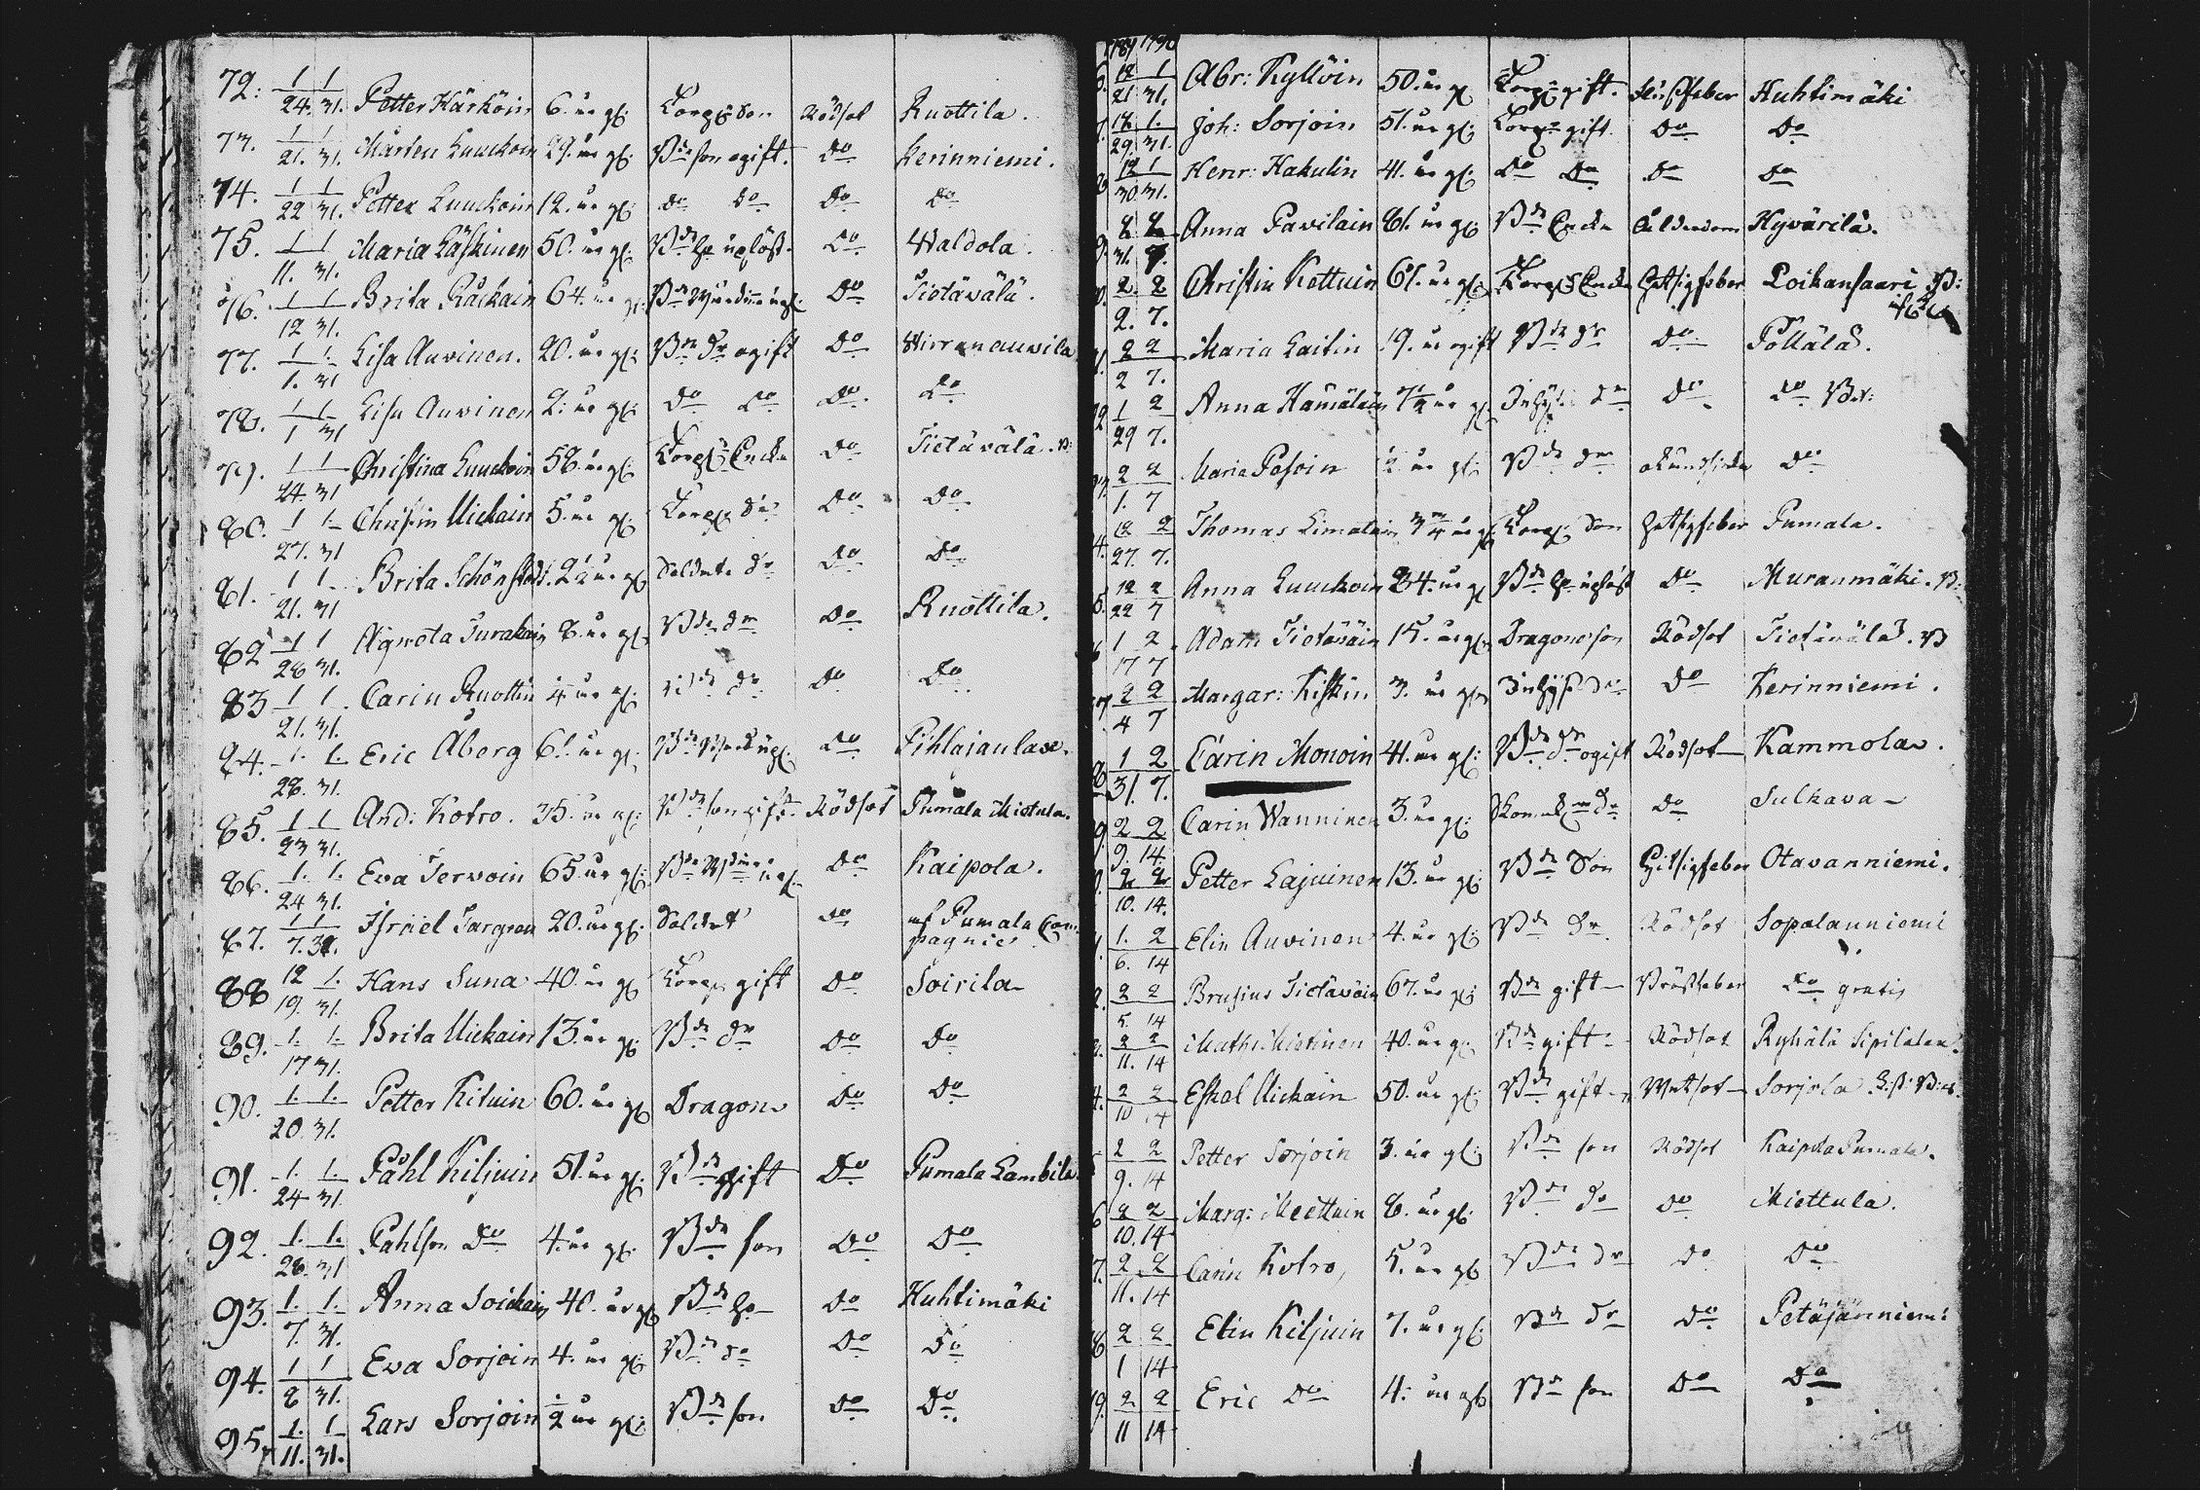 72. 1/24. 1/31. Petter Härköin 6. år gl. Torp: Son Rödsot Ruottila.
73. 1/21. 1/31. Mårten Luuckoin 29. år gl. Bde son ogift. Do Kerinniemi.
74. 1/22 1/31. Petter Luuckoin 12. år gl. Do Do Do Do
75. 1/11. 1/31. Maria Läskinen 50. år gl. Bde Do Waldola.
76. 1/12 1/31. Brita Räckäin 64. år gl. Bde Do Tietäwälä.
77. 1/1. 1/31 Lisa Auvinen. 20. år gl. Bde dr ogift Do Wirranauvila
78. 1/1 1/31 Lisa Auvinen 2. år gl. Do Do Do Do
79. 1/24. 1/31 Christina Luuckoin 58. år gl. Torp: Encka Do Tietäwälä.
80. 1/27. 1/31 Christin Uickain 5. år gl. Torp: dr Do Do
81. 1/21. 1/31 Brita Schönstedt. 2 1/2 år gl. Soldats dr Do Do
82 1/28 1/31. Agneta Turakain 8. år gl. Bde dr Do Ruottila.
83 1/21. 1/31. Carin Ruottin 4 år gl. Bde dr Do Do
84. 1/28. 1/31. Eric Åberg 61. år gl. Do Pihlajanlax.
85. 1/23 1/31. And: Kotro. 35. år gl. Bde son gift. Rödsot Pumala Mietula.
86. 1/24 1/31. Eva Tervoin 65 år gl. Bde Do Kaipola.
87. 1/7. 1/31. Israel Targren 20. år gl. Soldat Do af Pumala Com
pagnie
88 12/19. 1/31. Hans Suna 40. år gl. Torp: gift Do Soirila
89. 1/17 1/31. Brita Uickain 13. år gl. Bde dr Do Do
90. 1/20. 1/31. Petter Kiluin 60. år gl. Dragon Do Do
91. 1/24 1/31. Påhl Kiljuin 51. år gl. Bde gift Do Pumala Lambila
92. 1/28. 1/31 Påhlson Do 4. år gl. Bde son Do Do
93. 1/7. 1/31. Anna Soickain 40. år gl. Bde Do Huhtimäki
94. 1/8 1/31. Eva Sorjoin 4. år gl. Bde dr Do Do
95. 1/11. 1/31. Lars Sorjoin 1/2 år gl. Bde son Do Do
1789 1790
12/21. 1/31. Abr: Kyllöin 50. år gl. Torp: gift. Huhtimäki
12/29. 1/31. Joh: Sorjoin 51. år gl. Torp: gift. Do Do
12/30 1/31. Henr: Hakulin 41. år gl. Do Do Do Do
Anna Pavilain 81. år gl. Bde Encka Ålderdom Hyvärilä.
2/2. 2/7. Christin Kettuin 61. år gl. Torp: Encka Hetsigfeber Loikansaari
2/2 2/7. Maria Laitin 19. år ogift Bde dr Do Pöllälä.
1/29 2/7. Anna Hämäläin 7 1/2 år gl. Inhys: dr Do Do
2/1. 2/7 Maria Pasoin 1/2 år gl. Bde dr Do
12/27. 2/7. Thomas Limatain 3/4 år gl. Torp: Son Hetsigfeber Pumala.
12/22 2/7 Anna Luuckoin 24. år gl. Bde Do Muranmäki.
1/17 2/7 Adam Tietäväin 15. år gl. Dragons son Rödsot Tietäwälä.
2/4 2/7 Margar: Kiskin 3. år gl. Inhys: dr Do Kerinniemi.
1/31. 2/7. Carin Monoin 41. år gl. Bde dr ogift Rödsot Kammola.
2/9. 2/14. Carin Wanninen 3. år gl. dr Do Sulkava
2/10. 2/14. Petter Lajuinen 13. år gl. Bde Son Hitsigfeber Otavanniemi.
1/6. 2/14 Elin Auvinen 4. år gl. Bde dr Rödsot Sopalanniemi
2/5. 2/14 Brusius Tietäväin 67. år gl. Bde gift Bröstfeber Do gratis
2/11. 2/14 Math: Mietinen 40. år gl. Bde gift Rödsot Ryhälä Sipilälax.
2/10 2/14 Eskel Uickain 50. år gl. Bde gift Watsot Sorjola
2/9. 2/14 Petter Sorjoin 3. år gl. Bde son Rödsot Kaipola Pumala.
2/10. 2/14 Marg: Miettuin 8. år gl. Bde dr Do Miettula.
2/11. 2/14 Carin Kotro, 5. år gl. Bde dr Do Do
2/1 2/14 Elin Kiljuin 7. år gl. Bde dr Do Petäjänniemi
2/11 2/14 Eric Do 4. år gl. Bde son Do Do